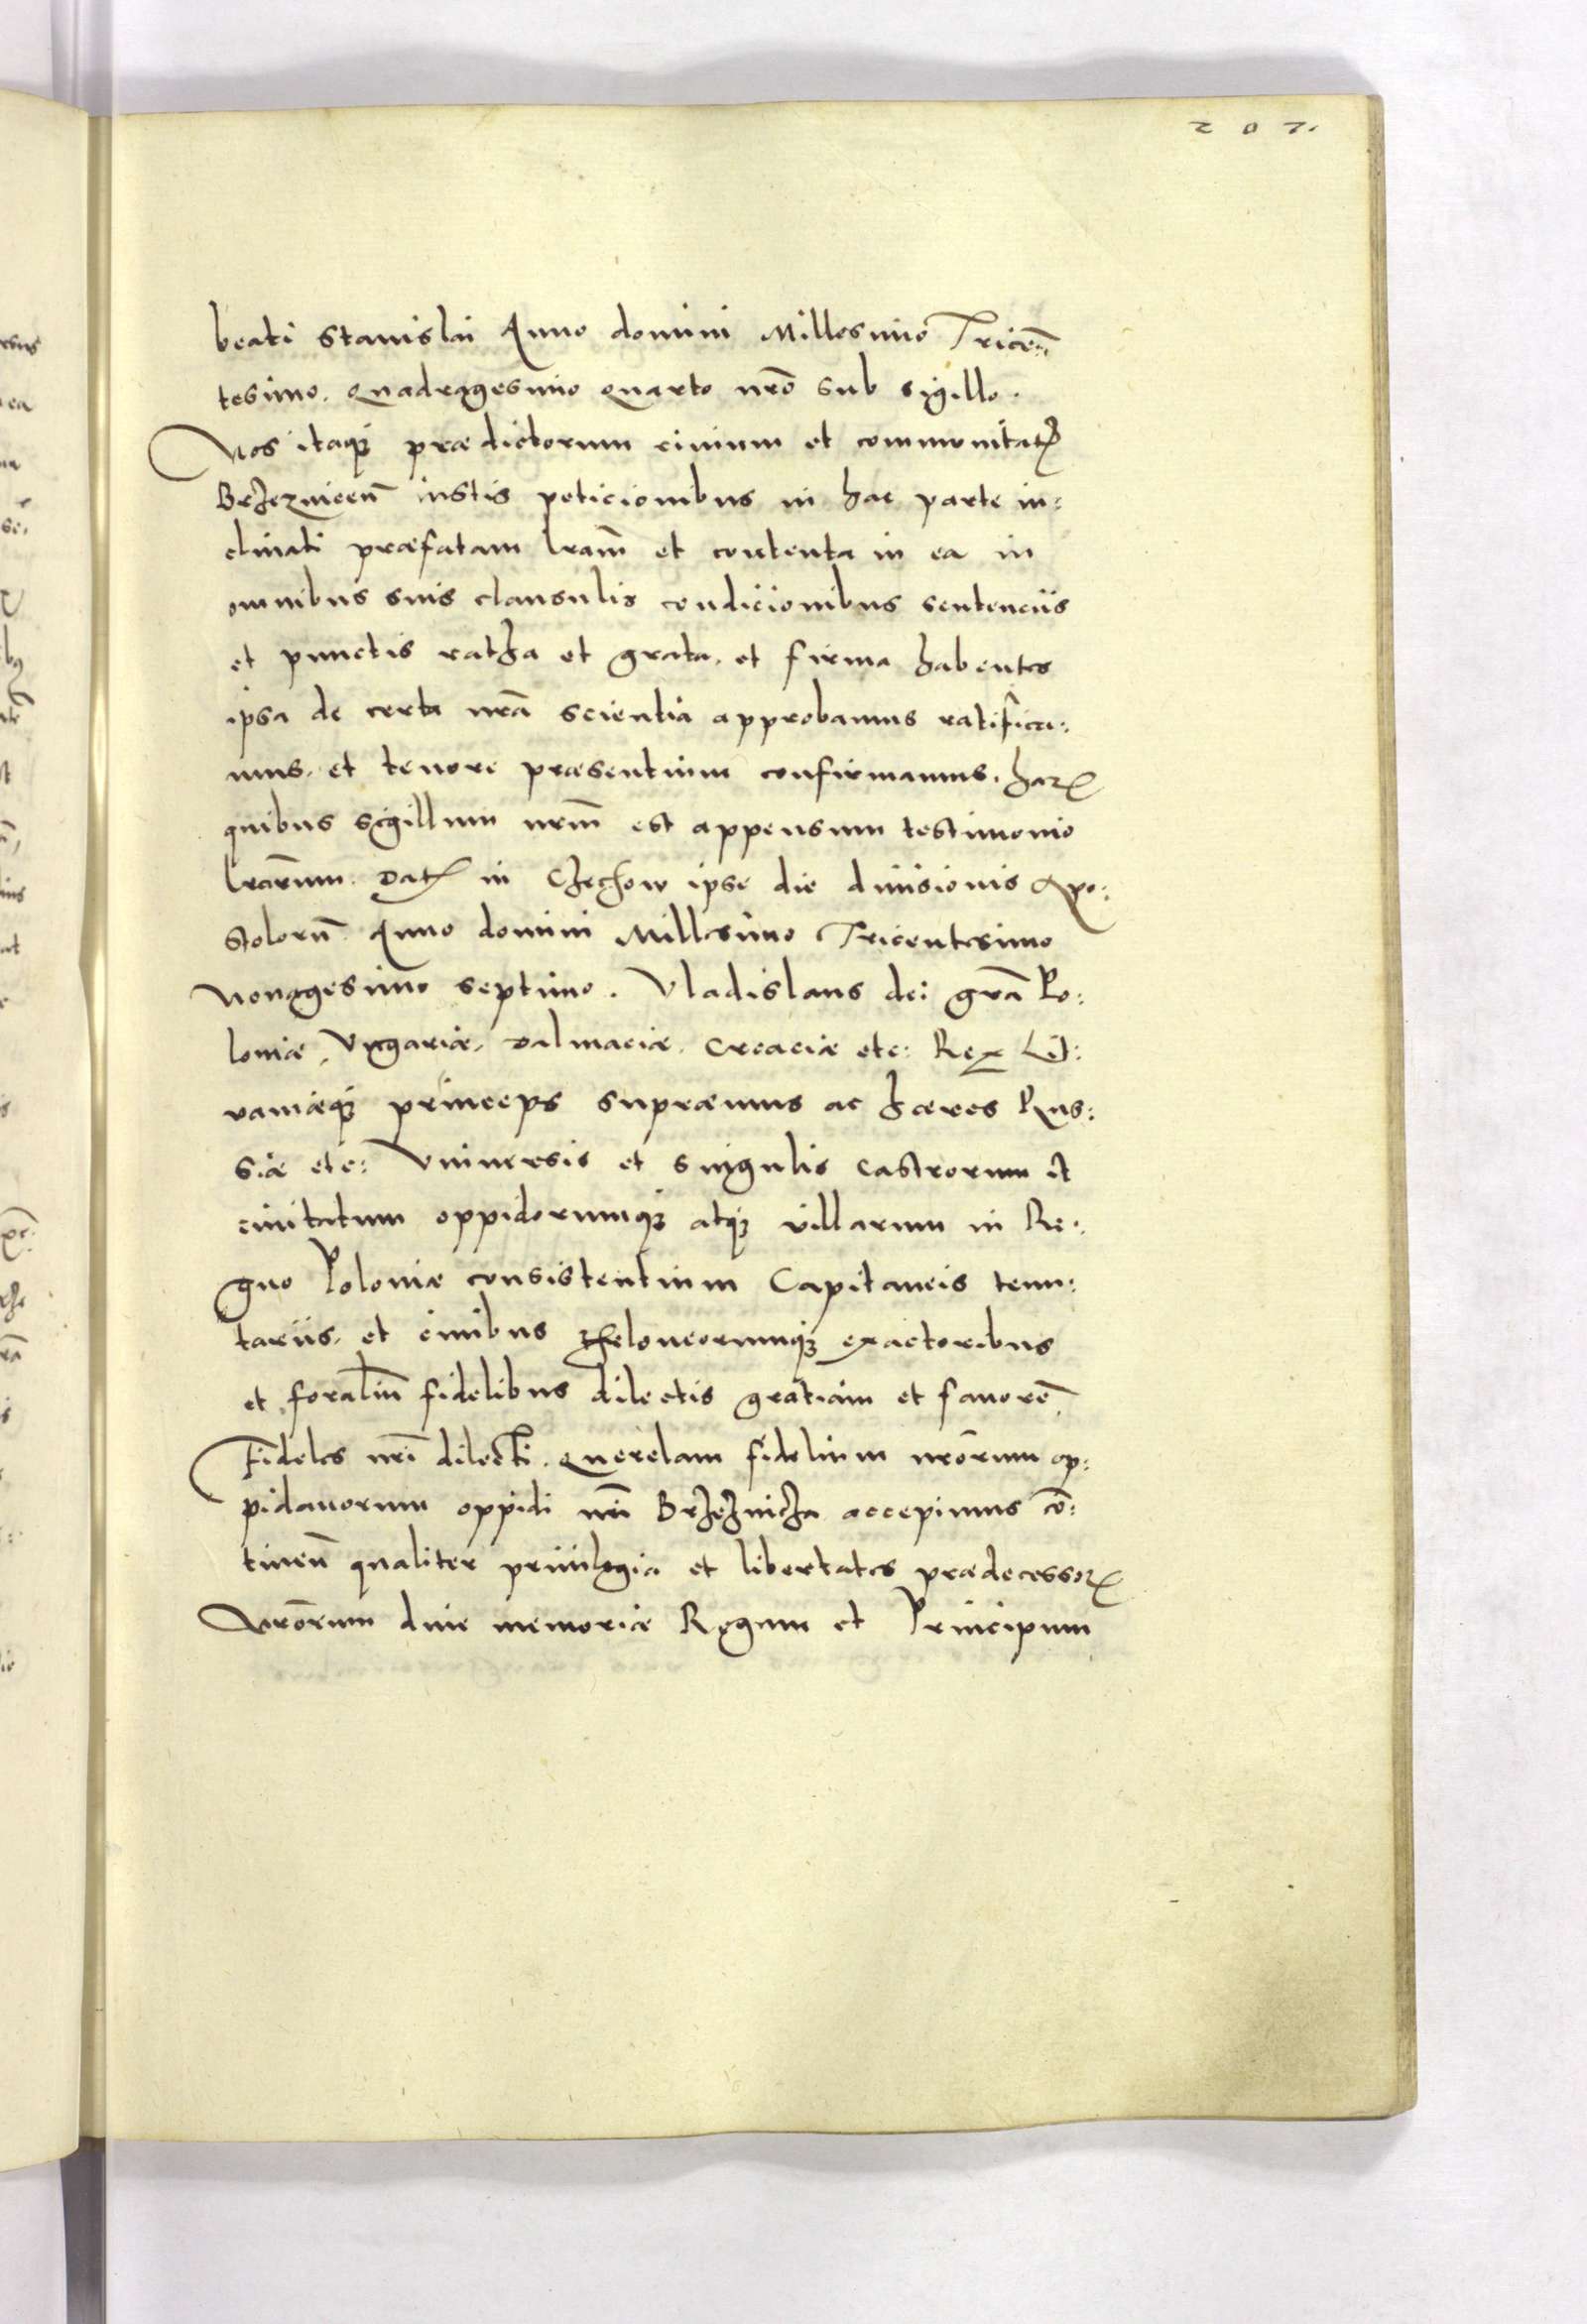 207.
beati Stanislai Anno domini Millesimo Tricen̄
tesimo. Quadragesimo quarto nr̄o sub sigillo.
Nos itaqꝫ prædictorum ciuium et communitatꝭ
Brzeznicen̄ iustis peticionibus in hac parte in:
clinati præfatam lr̄am et contenta in ea in
omnibus suis clausulis condicionibus sentenciis
et punctis ratha et grata. et firma habentes
ipsa de certa nr̄a scientia approbamus ratifica:
mus. et tenore præsentium confirmamus. haꝝ
quibus sigillum nr̄m est appensum testimonio
lr̄arum. Datꝭ in Czechow ipse die diuisionis Apo:
stolorū Anno domini Millesimo Tricentesimo
Nonagesimo septimo. Vladislaus dei gr̄a Po:
loniæ, Vngariæ, Dalmaciæ, Croaciæ etc: Rex Lit:
vaniæqꝫ princeps supræmus ac hæres Rus:
siæ etc: Vniuersis et singulis castrorum et
ciuitatum oppidorumqꝫ atqꝫ villarum in Re:
gno Poloniæ consistentium Capitaneis tenu:
tariis. et ciuibus theloneorumqꝫ exactoribus
et foraliū fidelibus dilectis gratiam et fauorē
Fideles nr̄i dilecti. querelam fidelium nr̄orum op:
pidanorum oppidi nr̄i Brzeznicza accepimus cō:
tinen̄ qualiter priuilegia et libertates prædecessoꝝ
nr̄orum diue memoriæ Regum et Principum